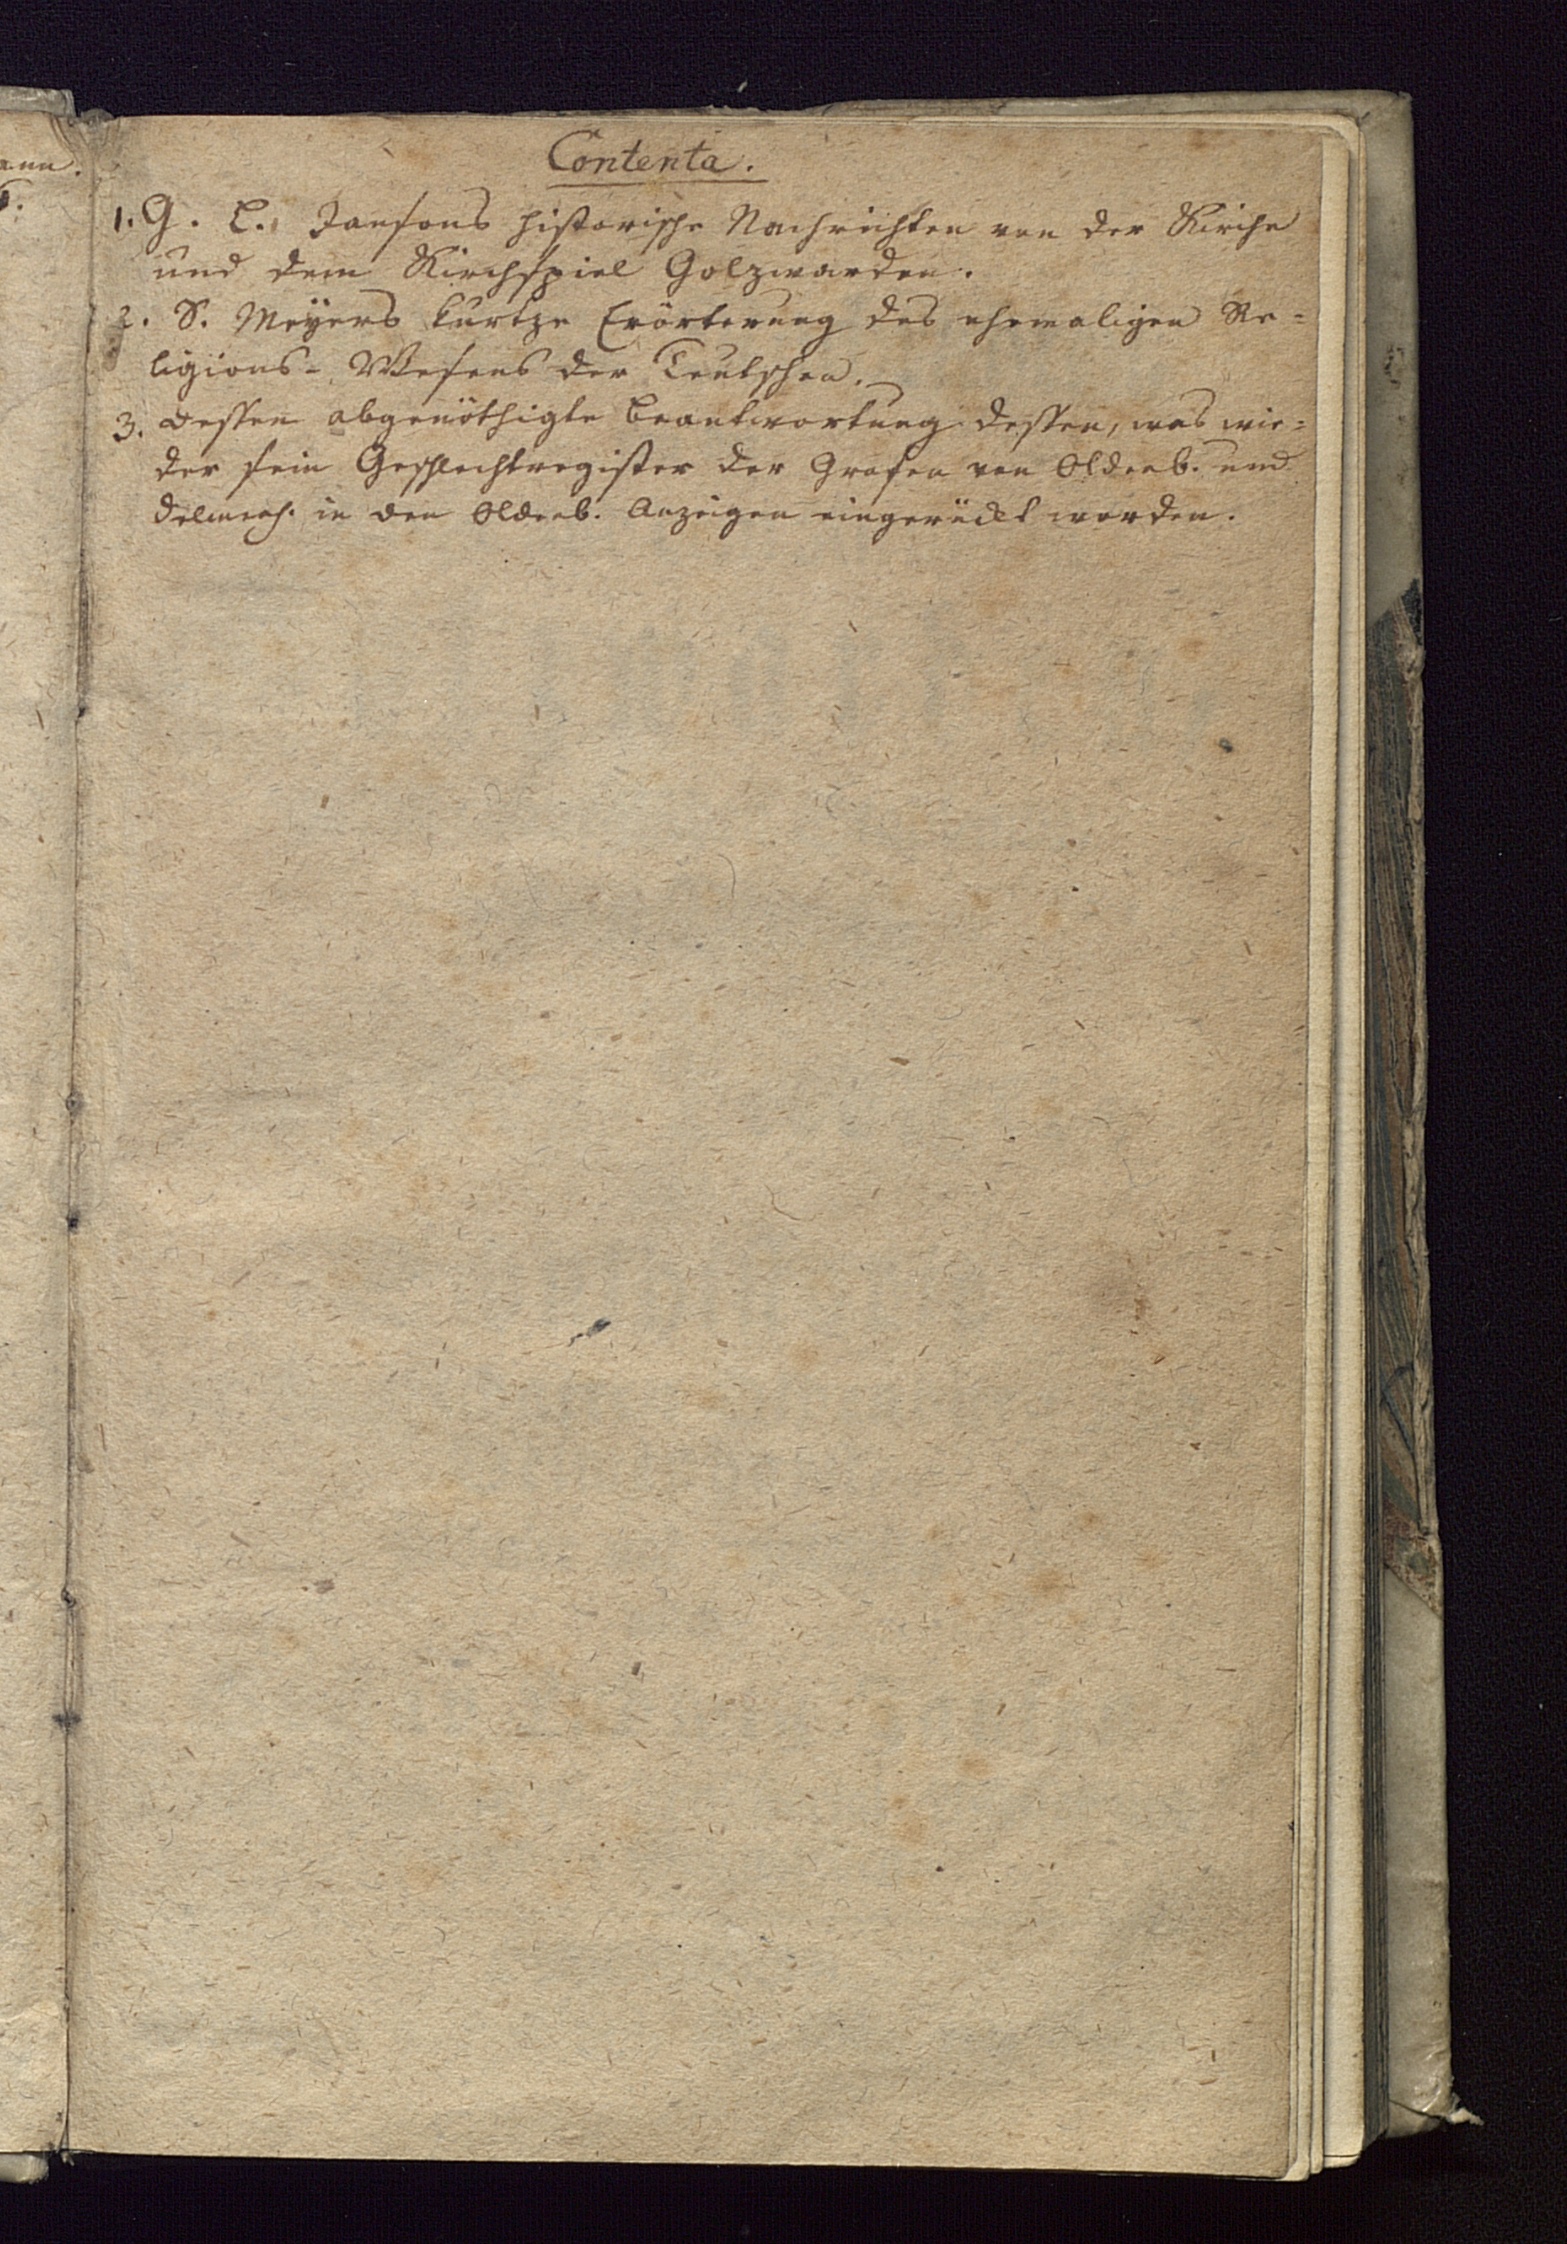 Contenta.
1. G. L. Jansons historische Nachrichten von der Kirche
und dem Kirchspiel Golzwarden.
2. S. Meyers kurtze Erörterung des ehemaligen Re=
ligions- Wesens der Teutschen.
3. Dessen abgenöthigte Beantwortung dessen, was wie=
der sein Geschlechtregister der Grafen von Oldenb. und
Delmenh. in den Oldenb. Anzeigen eingerückt worden.